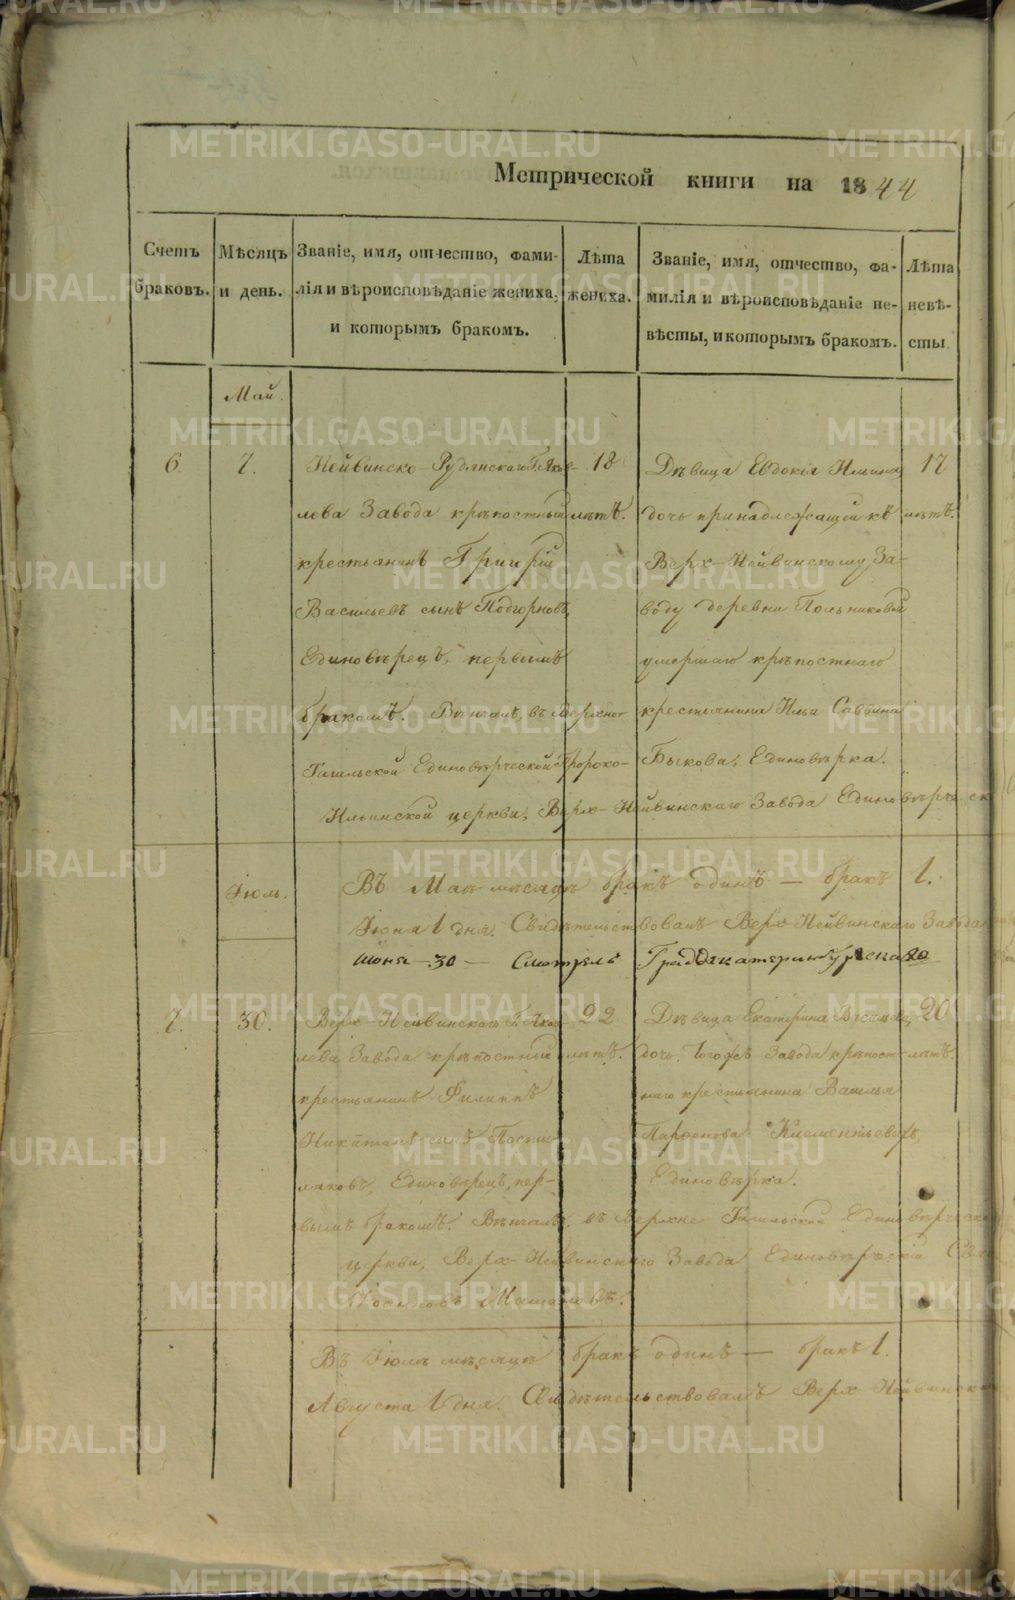 Метрической книги на 1844
Счетъ браковъ.
Мѣсяцъ и день.
Званіе, имя, отчество, фами-
лія и вѣроисповѣданіе жениха,
и которымъ бракомъ.
Лѣта
жениха.
Званіе, имя, отчество, фа-
милія и вѣроисповѣданіе не-
вѣсты, и которымъ бракомъ.
Лѣта
невѣ-
сты.
Май.
6. 7.
Нейвинско-Рудянскаго Г. Яков-
лева Завода крѣпостный
крестьянинъ Григорій
Васильевъ сынъ Подгорновъ,
Единовѣрецъ, первымъ
бракомъ. Вѣнчалъ, въ Верхне-
Тагильской Единовѣрческой Пророко-
Ильинской церкви, Верх-Нейвинскаго Завода Единовѣрческ
18
лѣтъ.
Дѣвица Евдокія Ильина
дочь принадлежащей къ
Верх-Нейвинскому За-
воду деревни Пальниковой
умершаго крѣпостнаго
крестьянина Ильи Саввина
Быкова, Единовѣрка.
17
лѣтъ.
Въ Маѣ мѣсяцѣ бракъ одинъ — бракъ 1.
Іюня 1 дня. Свидѣтельствовалъ Верх-Нейвинскаго Завода
Июня — 30 — Смотрелъ Градоекатеринбургска
Іюль.
7. 30.
Верх-Нейвинскаго Г. Яков-
лева Завода крѣпостный
крестьянинъ Филиппъ
Никитинъ сынъ
Единовѣрецъ, пер-
вымъ бракомъ. Вѣнчалъ, въ Верхне Тагильской Единовѣрческой
церкви, Верх-Нейвинскаго Завода Единовѣрческій
22
лѣтъ.
Дѣвица Екатерина Васильева
дочь, тогожъ Завода крѣпост-
наго крестьянина Василья
Парфенова Клементьева,
Единовѣрка.
20
лѣтъ.
Въ Іюлѣ мѣсяцѣ бракъ одинъ — бракъ 1.
Августа 1 дня. Свидѣтельствовалъ Верх Нейвинска
METRIKI.GASO-URAL.RU